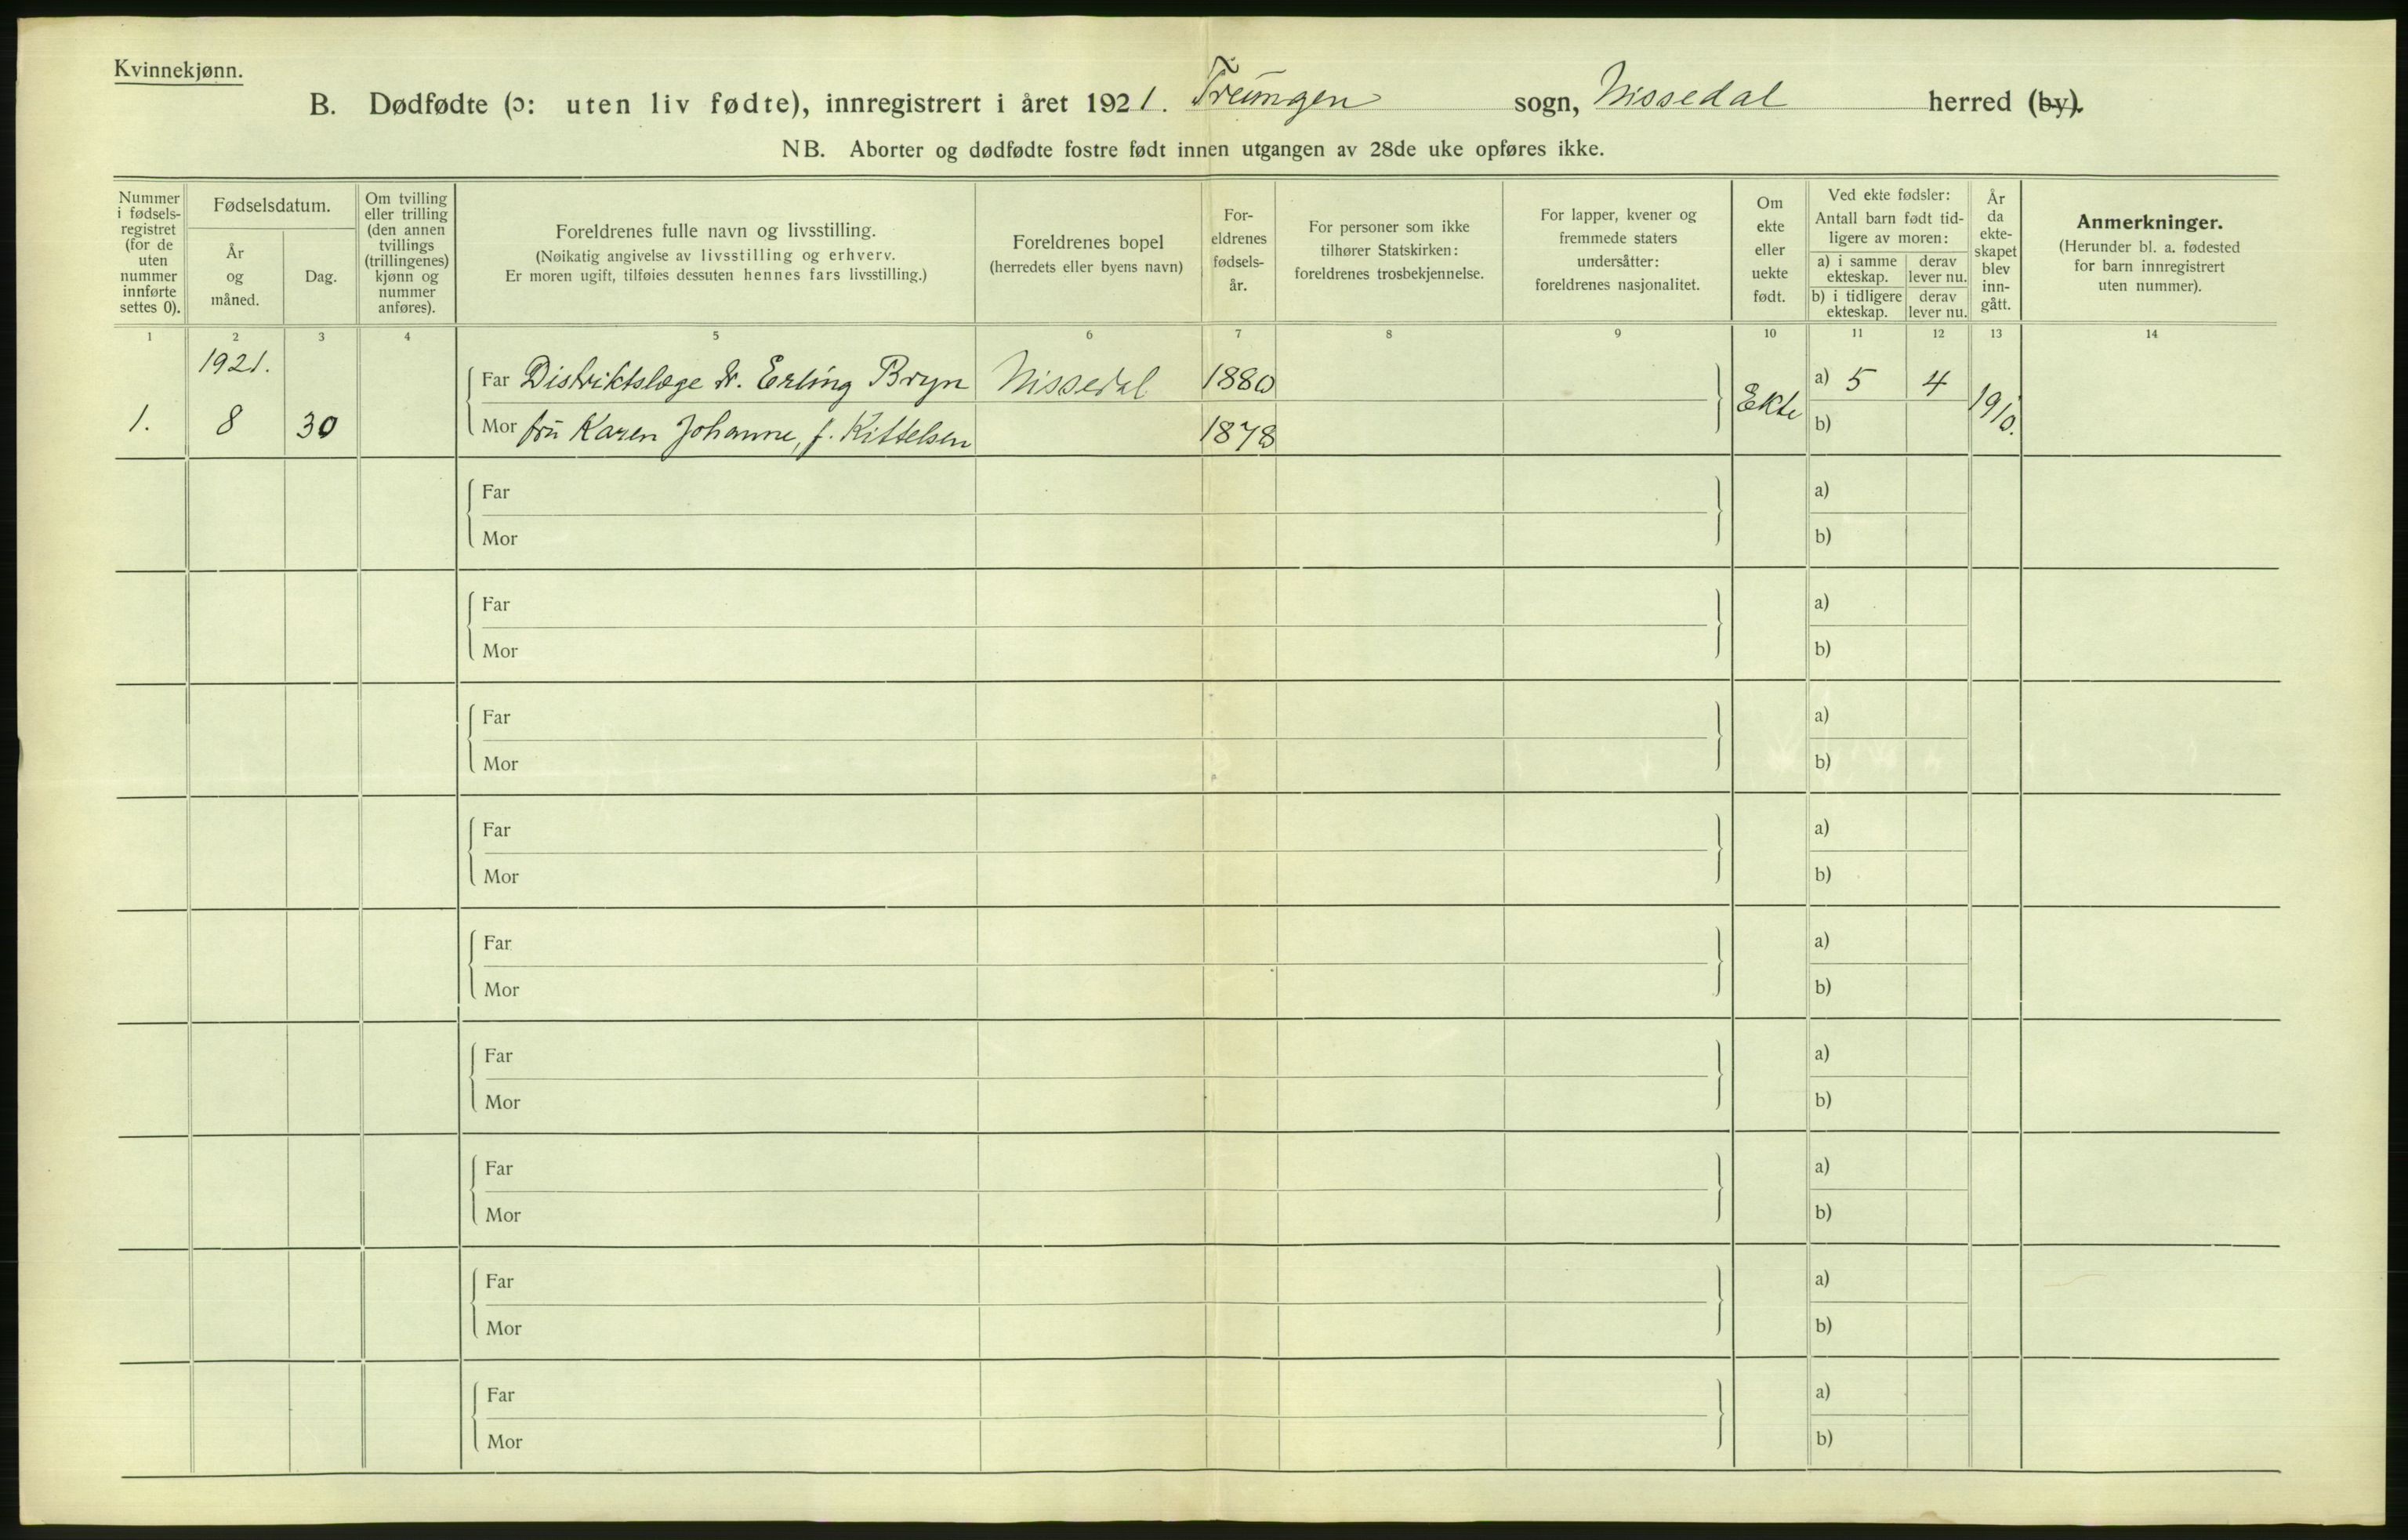 Kvinnekjønn.
B. Dødfødte (ɔ: uten liv fødte), innregistrert i året 1921. Treungen sogn, Nissedal herred (by).
NB. Aborter og dødfødte fostre født innen utgangen av 28de uke opføres ikke.
Nummer
i fødsels-
registret
(for de
uten
nummer
innførte
settes 0).
Fødselsdatum.
År
og
måned.
Dag.
Om tvilling
eller trilling
(den annen
tvillings
(trillingenes)
kjønn og
nummer
anføres).
Foreldrenes fulle navn og livsstilling.
(Nøikatig angivelse av livsstilling og erhverv.
Er moren ugift, tilføies dessuten hennes fars livsstilling.)
Foreldrenes bopel
(herredets eller byens navn)
For-
eldrenes
fødsels-
år.
For personer som ikke
tilhører Statskirken:
foreldrenes trosbekjennelse.
For lapper, kvener og
fremmede staters
undersåtter:
foreldrenes nasjonalitet.
Om
ekte
eller
uekte
født.
Ved ekte fødsler:
Antall barn født tid-
ligere av moren:
a) i samme
ekteskap.
derav
lever nu.
b) i tidligere
ekteskap.
derav
lever nu.
År
da
ekte-
skapet
blev
inn-
gått.
Anmerkninger.
(Herunder bl. a. fødested
for barn innregistrert
uten nummer).
1 2 3 4 5 6 7 8 9 10 11 12 13 14
1921.
Far Distriktslæge dr. Erling Bryn Nissedal 1880 a) 5 4
1. 8 30 Ekte 1910.
Mor fru Karen Johanne, f. Kittelsen 1878 b)
Far a)
Mor b)
Far a)
Mor b)
Far a)
Mor b)
Far a)
Mor b)
Far a)
Mor b)
Far a)
Mor b)
Far a)
Mor b)
Far a)
Mor b)
Far a)
Mor b)